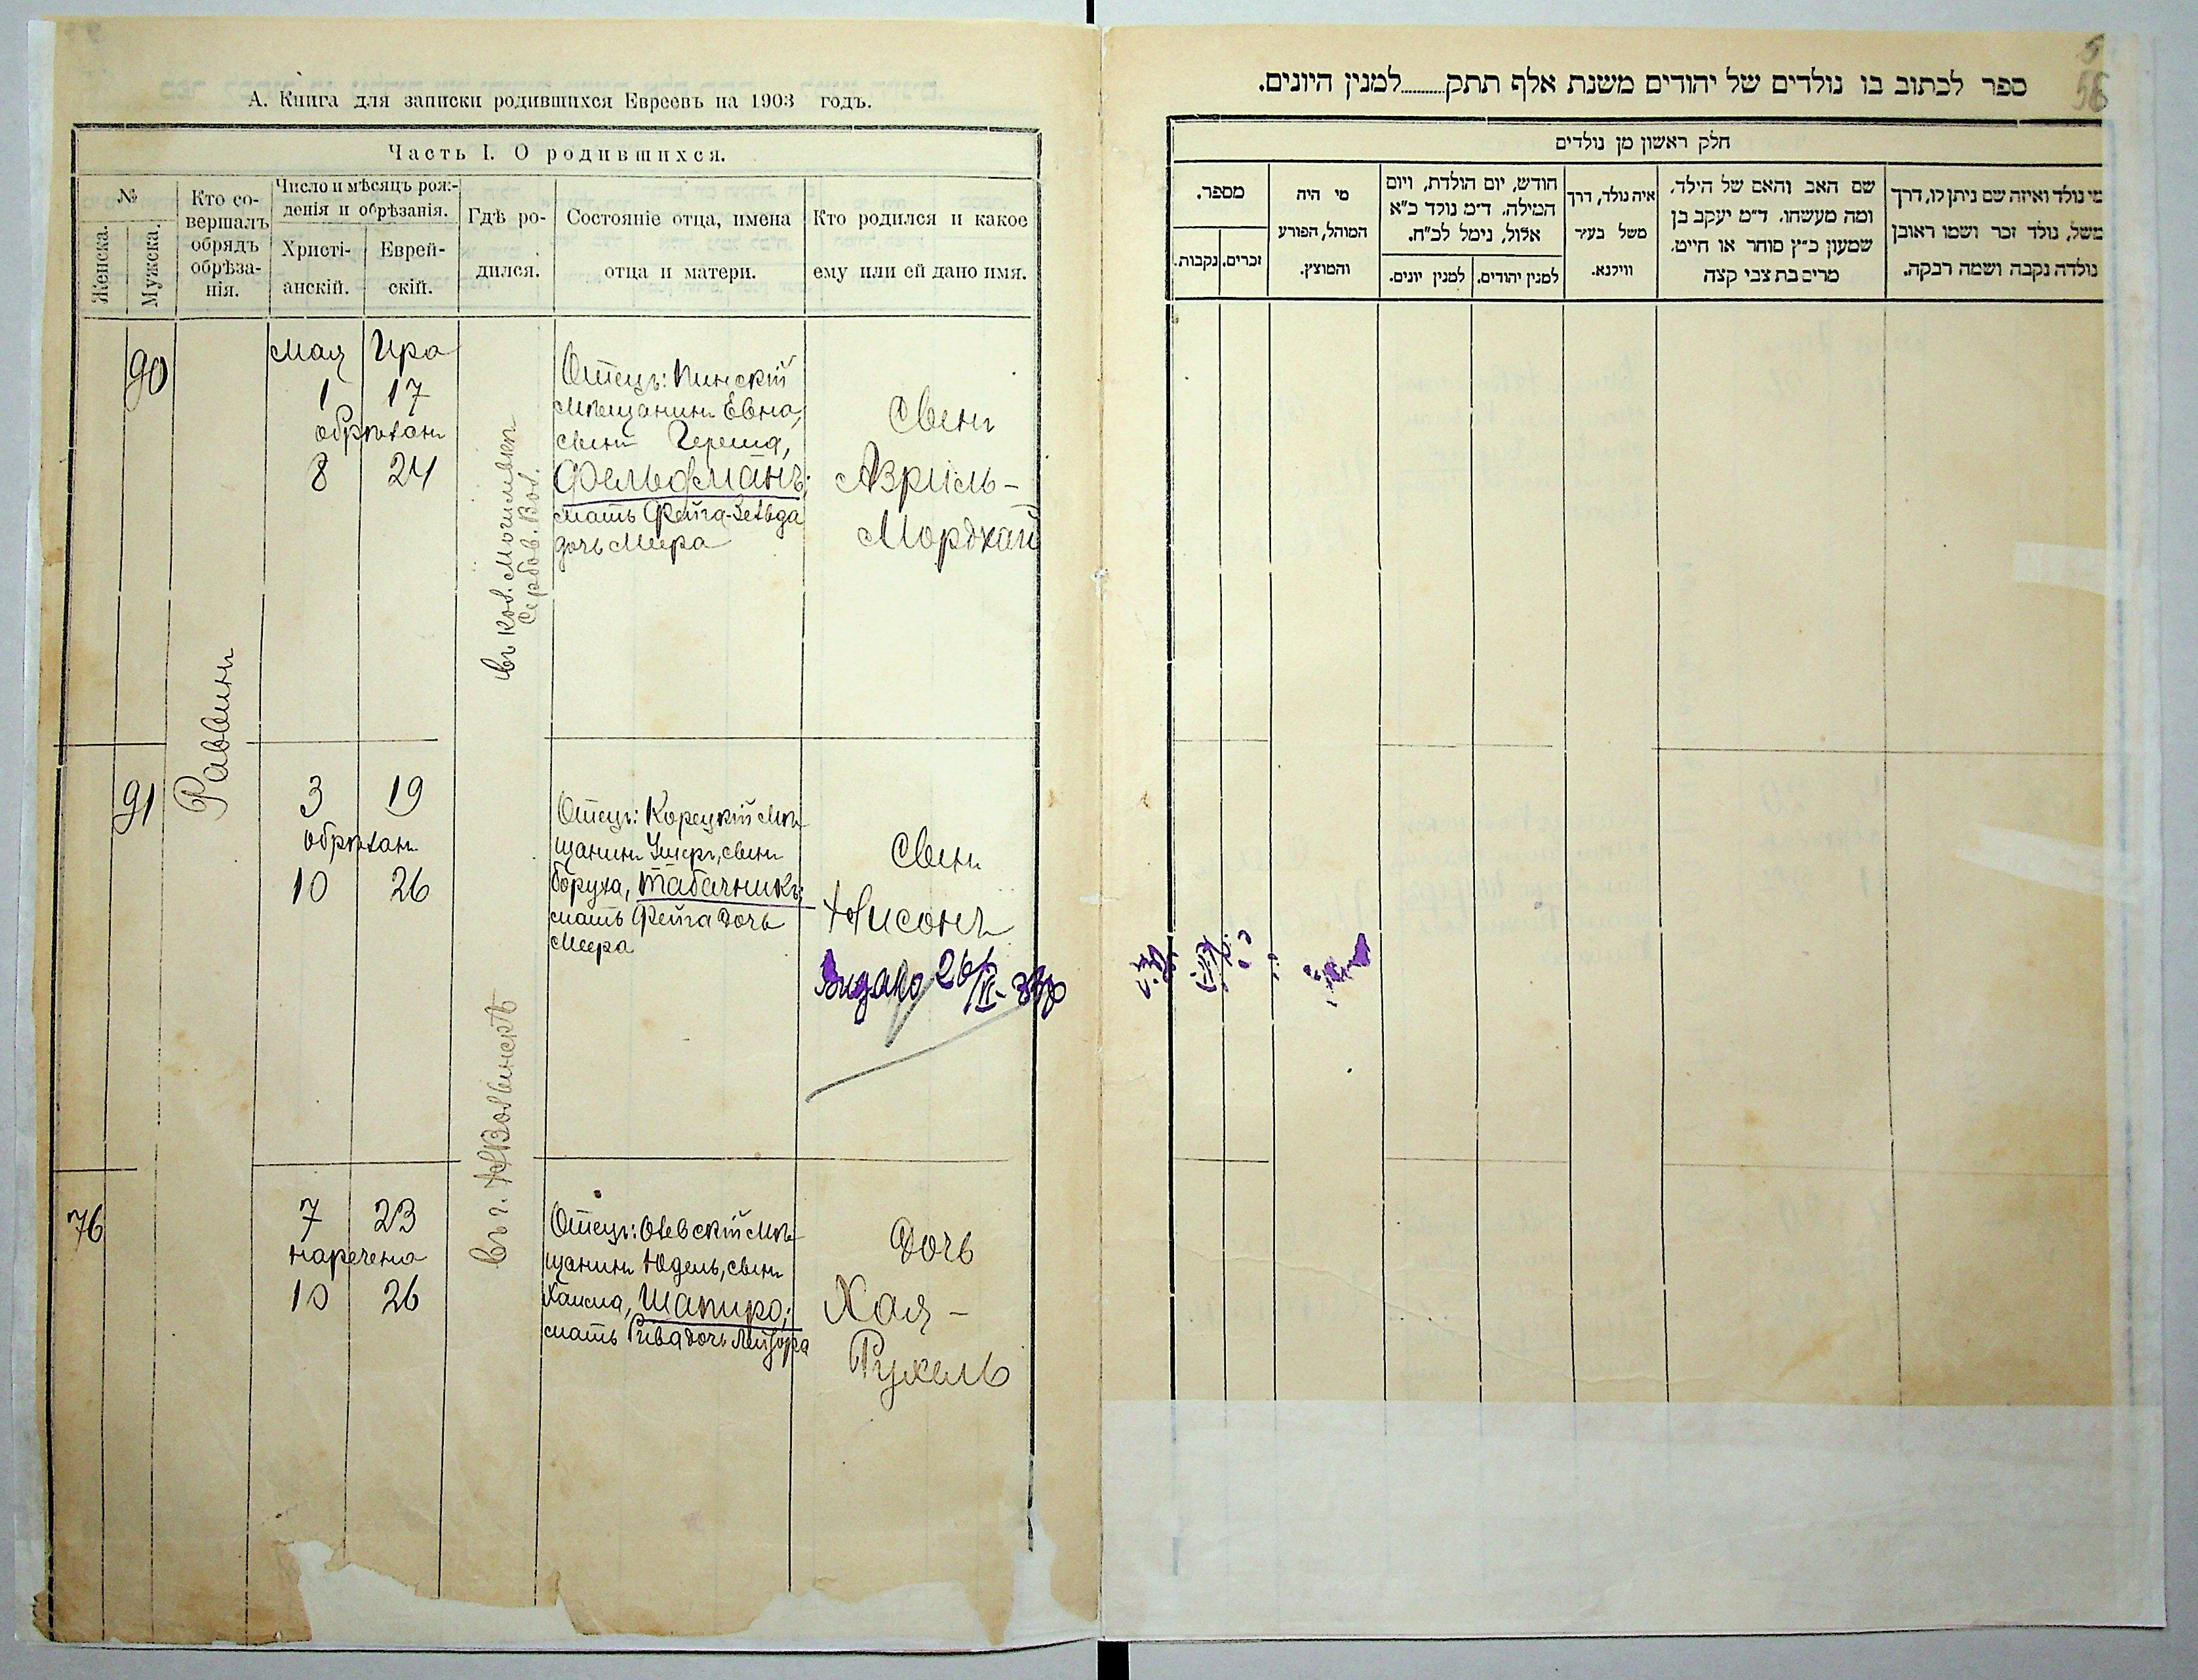 А. Книга для записки родившихся Евреевъ на 1903 годъ.
Часть I. О родившихся.
№
Женска.
Мужска.
Кто со-
вершалъ
обрядъ
обрѣза-
нія.
Число и мѣсяцъ рож-
денія и обрѣзанія.
Христі-
анскій.
Еврей-
скій.
Гдѣ ро-
дился.
Состояніе отца, имена
отца и матери.
Кто родился и какое
ему или ей дано имя.
90
Раввинъ
Мая Ира
1 17
обрѣзанъ
8 24
въ кол. Могилевкѣ
Сербов. Вол.
Отецъ: Пинскій
мѣщанинъ Евна,
сынъ Герша,
Фельдманъ;
мать Фейга-Зельда
дочь Меера
Сынъ
Азриль-
Мордхай
91
3 19
обрѣзанъ
10 26
въ г. НВолынскѣ
Отецъ: Корецкій мѣ-
щанинъ Ушеръ, сынъ
Боруха, Табачникъ;
мать Фейга дочь
Меера
Сынъ
Нисонъ
Видано 26/VI
76
7 23
наречена
10 26
Отецъ: Олевскій мѣ-
щанинъ Юдель, сынъ
Хаима, Шапиро;
мать Рива дочь Лейзора
Дочь
Хая-
Рухель
56
ספר לכתוב בו נולדים של יהודים משנת אלף תתק..........למנין היונים.
חלק ראשון מן נולדים
מספר.
זכרים.
נקבות.
מי היה
המוהל, הפורע
והמוצץ.
חודש, יום הולדת, ויום
המילה. ד״מ נולד כ״א
אלול, נימל לכ״ח.
למנין יונים.
למנין יהודים.
איה נולד, דרך
משל בעיר
ווילנא.
שם האב והאם של הילד.
ומה מעשהו. ד״מ יעקב בן
שמעון כ״ץ סוחר או חייט.
מרים בת צבי קצה
מי נולד ואיזה שם ניתן לו, דרך
משל, נולד זכר ושמו ראובן
נולדה נקבה ושמה רבקה.